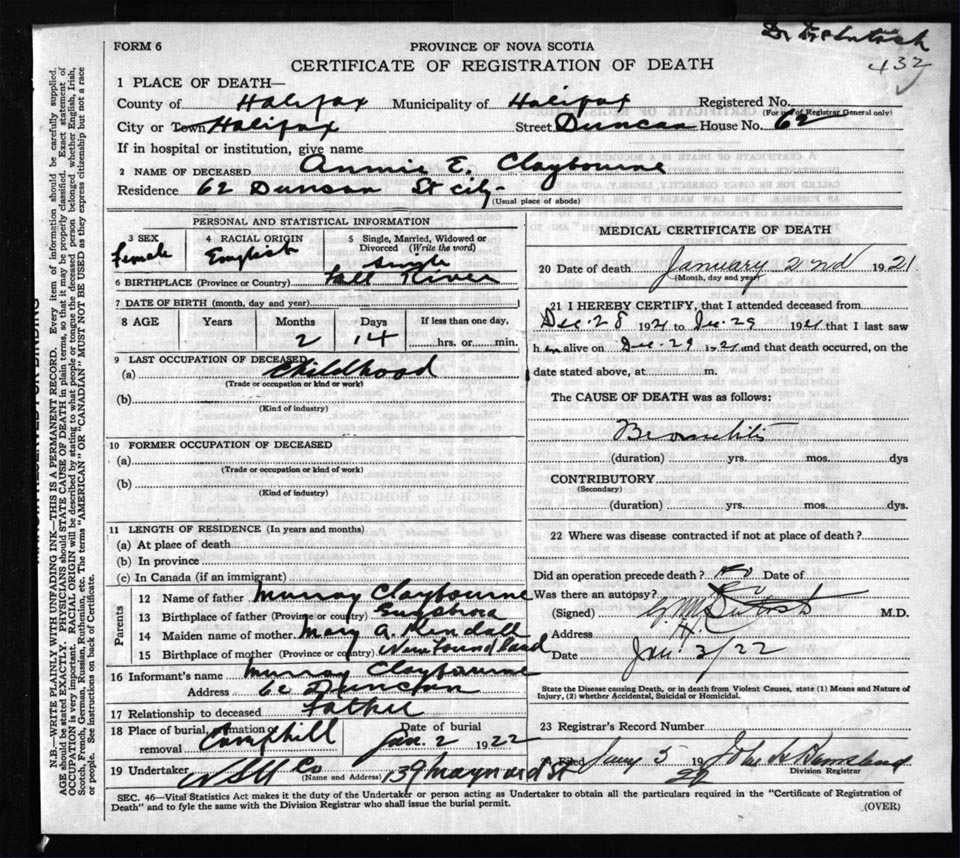 Dr. McIntosh
432
FORM 6
PROVINCE OF NOVA SCOTIA
CERTIFICATE OF REGISTRATION OF DEATH
1 PLACE OF DEATH—
County of Halifax Municipality of Halifax Registered No.
(For use of Registrar General only)
City or Town Halifax Street Duncan House No. 62
If in hospital or institution, give name
2 NAME OF DECEASED Annie E. Claybourne
Residence 62 Duncan St City-
(Usual place of abode)
PERSONAL AND STATISTICAL INFORMATION
3 SEX
female
4 RACIAL ORIGIN
English
5 Single, Married, Widowed or Divorced (Write the word)
single
6 BIRTHPLACE (Province or Country) Fall River
7 DATE OF BIRTH (month, day and year)
8 AGE Years Months Days If less than one day,
2 14 hrs. or min.
9 LAST OCCUPATION OF DECEASED
(a) Childhood
(Trade or occupation or kind or work)
(b)
(Kind of industry)
10 FORMER OCCUPATION OF DECEASED
(a)
(Trade or occupation or kind or work)
(b)
(Kind of industry)
11 LENGTH OF RESIDENCE (In years and months)
(a) At place of death
(b) In province
(c) In Canada (if an immigrant)
Parents
12 Name of father Murray Claybourne
13 Birthplace of father (Province or country)
14 Maiden name of mother Mary A. Mendall
15 Birthplace of mother (Province or country) Newfoundland
16 Informant's name Murray Claybourne
Address 62 Duncan
17 Relationship to deceased Father
18 Place of burial, cremation or removal Camphill
Date of burial Jan. 2 1922
19 Undertaker N S U Co 139 Maynard St
(Name and Address)
MEDICAL CERTIFICATE OF DEATH
20 Date of death January 2nd 1921
(Month, day and year)
21 I HEREBY CERTIFY, that I attended deceased from
Dec. 28 1921 to Dec. 29 1921 that I last saw
h er alive on Dec. 29 1921 and that death occurred, on the
date stated above, at m.
The CAUSE OF DEATH was as follows:
Bronchitis
(duration) yrs. mos. dys
CONTRIBUTORY
(Secondary)
(duration) yrs. mos. dys.
22 Where was disease contracted if not at place of death?
Did an operation precede death? No Date of
Was there an autopsy? No
(Signed) McIntosh M.D.
Address H.
Date Jan. 3/22
State the Disease causing Death, or in death from Violent Causes, state (1) Means and Nature of Injury, (2) whether Accidental, Suicidal or Homicidal.
23 Registrar's Record Number
Filed Jany 5 19 22
Division Registrar
SEC. 46—Vital Statistics Act makes it the duty of the Undertaker or person acting as Undertaker to obtain all the particulars required in the "Certificate of Registration of
Death" and to fyle the same with the Division Registrar who shall issue the burial permit.
(OVER)
N.B.—WRITE PLAINLY WITH UNFADING INK—THIS IS A PERMANENT RECORD. Every item of information should be carefully supplied.
AGE should be stated EXACTLY. PHYSICIANS should STATE CAUSE OF DEATH in plain terms, so that it may be properly classified. Exact statement of
OCCUPATION is very important. RACIAL ORIGIN will be described by stating to what people or tongue the deceased person belonged, whether English, Irish,
Scotch, French, German, Russian, Ruthenian, etc. The terms "AMERICAN" OR "CANADIAN" MUST NOT BE USED as they express citizenship but not a race
or people. See instructions on back of Certificate.